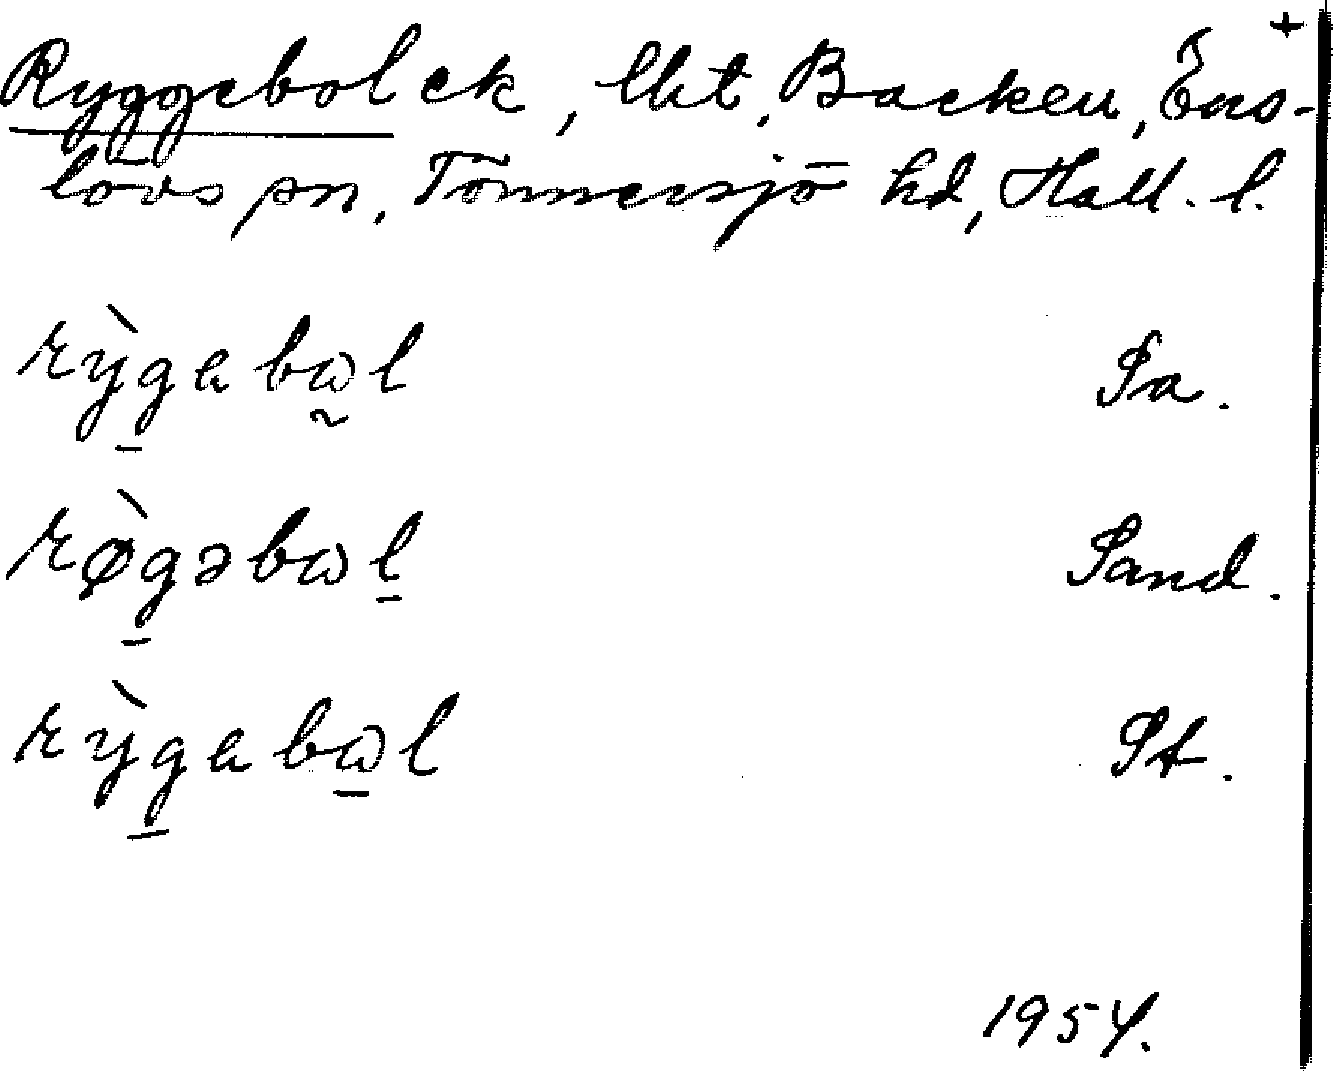 +
Ryggebol ek, lht. Backen, Ens-
lövs sn, Tönnersjö hd, Hall. l.
rỳgabɷl Sa.
rø̀gəbɷl Sand.
rỳgabɷl St.
1954.